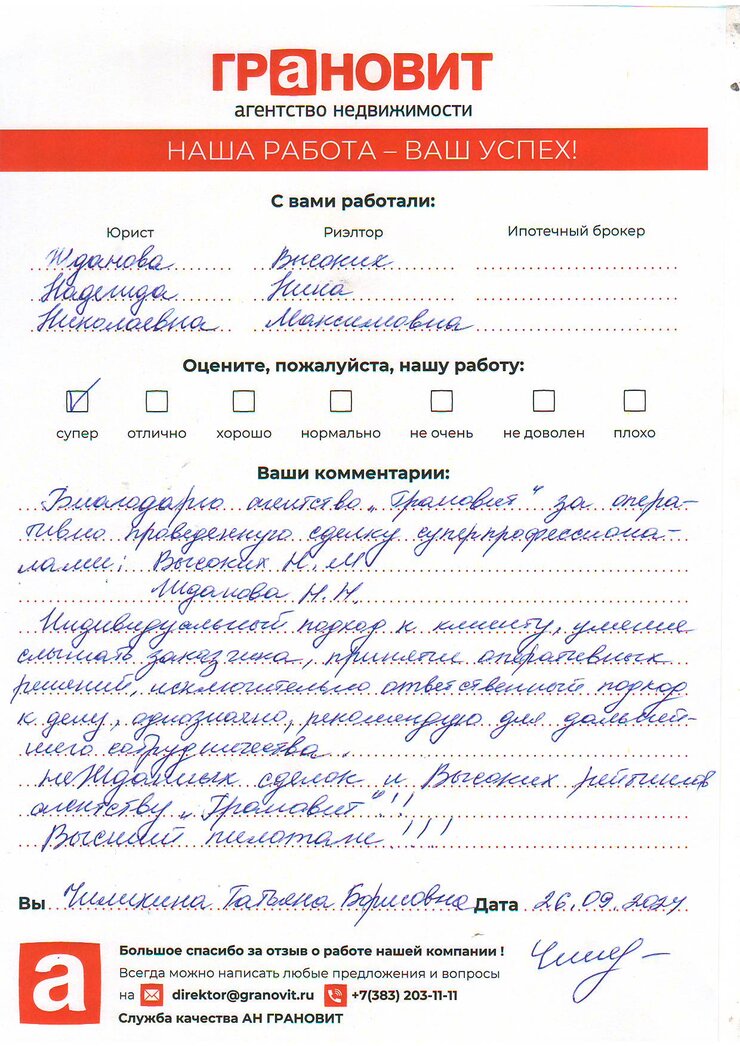 ГРаНОВИТ
агентство недвижимости
НАША РАБОТА – ВАШ УСПЕХ!
С вами работали:
Юрист Риэлтор Ипотечный брокер
Жданова Высоких
Надежда Ника
Николаевна Максимовна
Оцените, пожалуйста, нашу работу:
супер отлично хорошо нормально не очень не доволен плохо
Ваши комментарии:
Благодарю агентство „Грановит" за опера-
тивно проведенную сделку суперпрофессиона-
лами: Высоких Н.М
Жданова Н.Н.
Индивидуальный подход к клиенту, умение
слышать заказчика, принятие оперативных
решений, исключительно ответственный подход
к делу, однозначно, рекомендую для дальней-
шего сотрудничества.
неЖданных сделок и Высоких рейтингов
агентству „Грановит"!!
Высший пилотаж!!!
Вы Чиликина Татьяна Борисовна Дата 26.09.2024
а
Большое спасибо за отзыв о работе нашей компании !
Всегда можно написать любые предложения и вопросы
на direktor@granovit.ru +7(383) 203-11-11
Служба качества АН ГРАНОВИТ